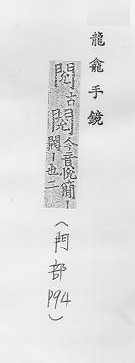 龍龕手鏡
閲古閲今音悅簡丨
閱丨也二
（門部
P94）